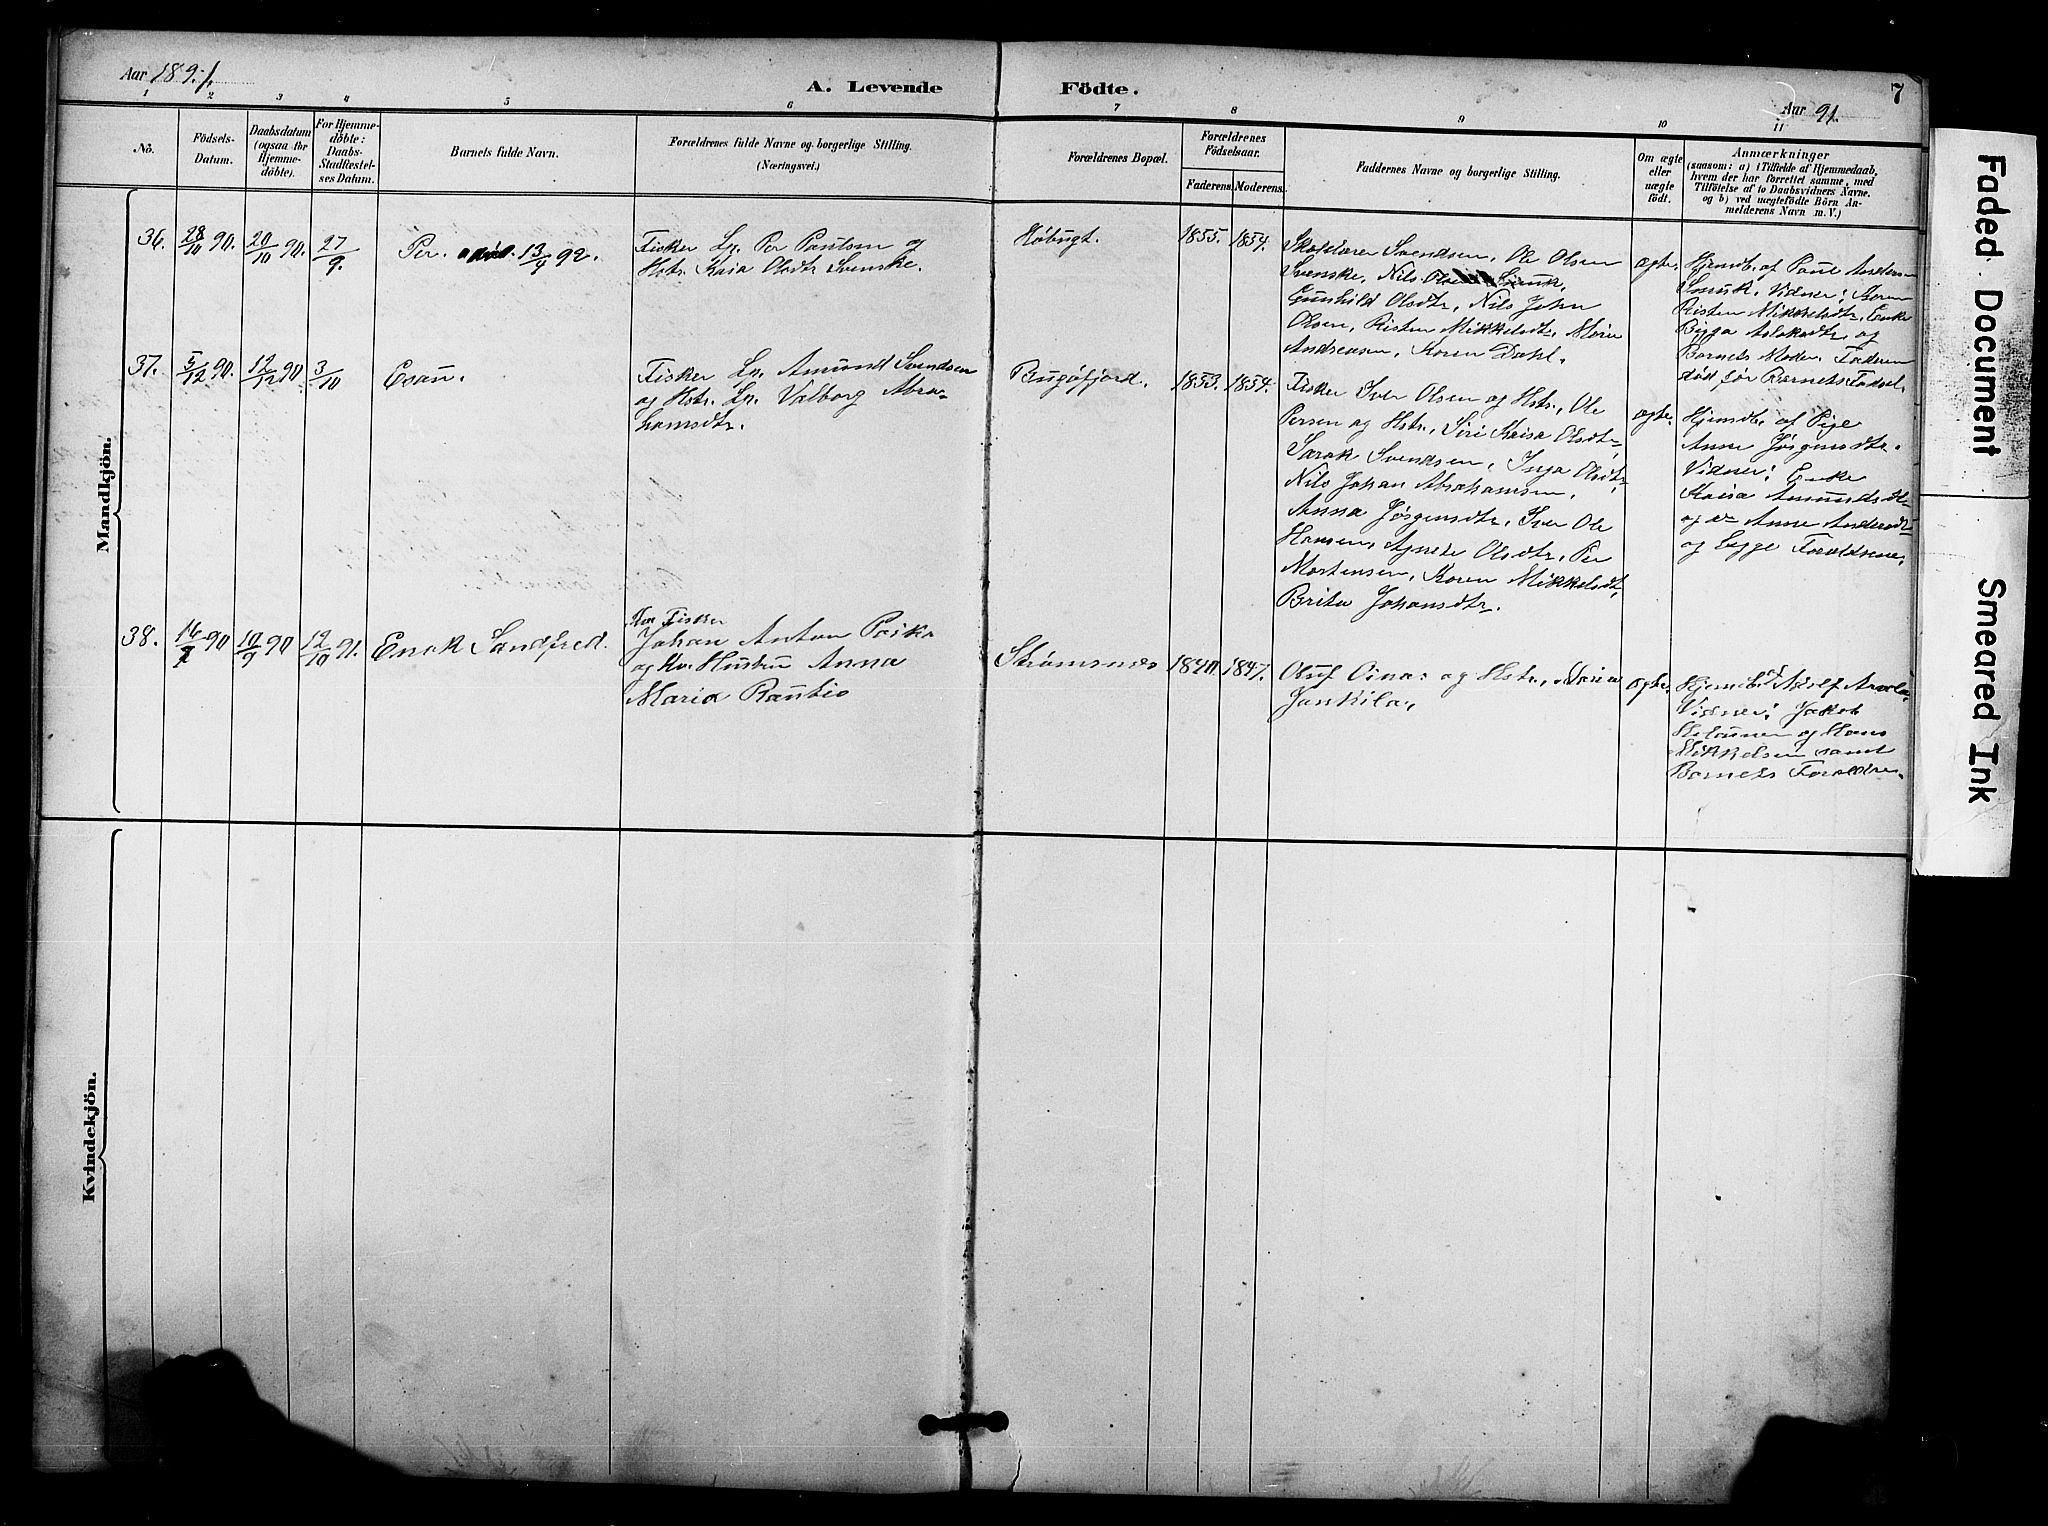 Aar 1891.
A. Levende Födte.
7
Aar 91.
1 2 3 4 5 6 7 8 9 10 11
No.
Födsels-
Datum.
Daabsdatum
(ogsaa for
Hjemme-
döbte).
For Hjemme-
döbte:
Daabs-
Stadfæstel-
ses Datum.
Barnets fulde Navn.
Forældrenes fulde Navne og borgerlige Stilling.
(Næringsvei.)
Forældrenes Bopæl.
Forældrenes
Födselsaar.
Faderens. Moderens.
Faddernes Navne og borgerlige Stilling.
Om ægte
eller
uægte
födt.
Anmærkninger
(saasom: a) i Tilfælde af Hjemmedaab,
hvem der har forrettet samme, med
Tilföielse af to Daabsvidners Navne.
og b) ved uægtefödte Börn An-
melderens Navn m. V.)
Mandkjön.
36.
28/10 90.
20/10 90.
27/9.
Per. død. 13/9 92.
Fisker Lp. Per Paulsen og
Hstr. Kaia Olsdtr Svenske.
Høbugt.
1855. 1854.
Svendsen, Ole Olsen
Svenske, Nils
Gunhild Olsdtr, Nils John
Olsen, Risten Mikkelsdtr, Marie
Andreasen, Karen Dahl.
ægte.
Hjemdb. af Poul Andersen
Vidner: Karen
Risten Mikkelsdtr, Enke
Bigga Aslaksdtr og
Barnets Moder. Faderen
død før Barnets Fødsel.
37.
5/12 90.
12/12 90.
3/10
Esau.
Fisker Lp. Amund Svendsen
og Hstr. Lp. Valborg Abra-
hamsdtr.
Bugøfjord.
1853. 1854.
Fisker Iver Olsen og Hstr., Ole
Persen og Hstr, Siri Kaisa Olsdtr,
Sarak Svendsen, Inga Olsdtr,
Nils Johan Abrahamsen,
Anna Jørgensdtr, Iver Ole
Hansen, Agnete Olsdtr, Per
Mortensen, Karen Mikkelsdtr,
Brita Johansdtr.
ægte.
Hjemdb. af Pige
Anne Jørgensdtr.
Vidner: Enke
Kaisa Amundsdtr
og Anne Andersdtr
og begge Forældrene.
38.
16/7 90
10/9 90
12/10 91.
Enok Sandfred.
Kv. Fisker
Johan Anton Paiko
og Kv. Hustru Anna
Maria Rautio
Strømsnes
1840. 1847.
Oluf Oina og Hstr., Maria
Junkila,
ægte.
Hjemdb. af Adolf
Vidner: Jakob
og Hans
Mikkelsen samt
Barnets Forældre.
Kvindekjön.
Faded Document
Smeared Ink